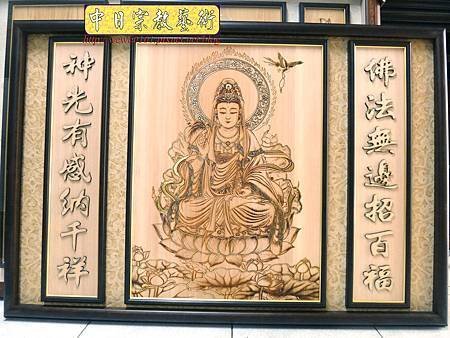 中日宗教藝術
佛法無邊招百福
神光有感納千祥